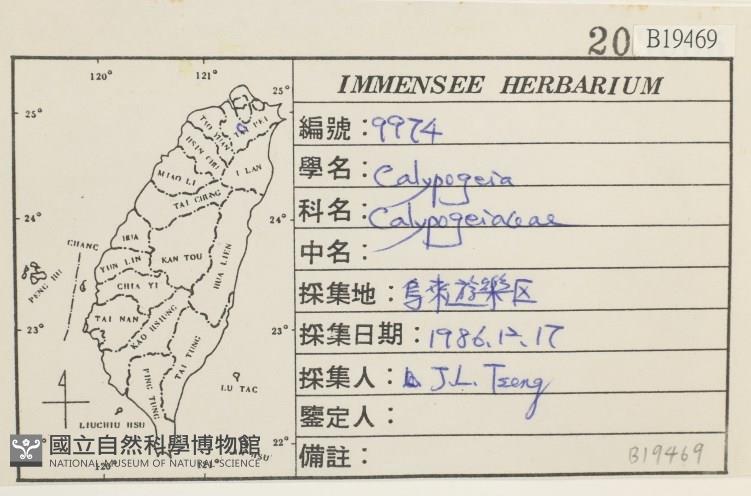 20 B19469
IMMENSEE HERBARIUM
編號：9974
學名：Calypogeia
科名：Calypogeiaceae
中名：
採集地：烏來遊樂区
採集日期：1986.12.17
採集人：J.L. Tseng
鑒定人：
備註：
B19469
120° 121°
25° 25°
TAO YUAN
TAI PEI
HSIN CHU
I LAN
MIAO LI
TAI CHUNG
24° 24°
CHANG HUA
YUN LIN
NAN TOU
HUA LIEN
PENG HU
CHIA YI
TAI NAN
KAO HSIUNG
23° 23°
TAI TUNG
PING TUNG
LU TAO
LIUCHIU HSU
22°
HSU
120° 121°
國立自然科學博物館
NATIONAL MUSEUM OF NATURAL SCIENCE